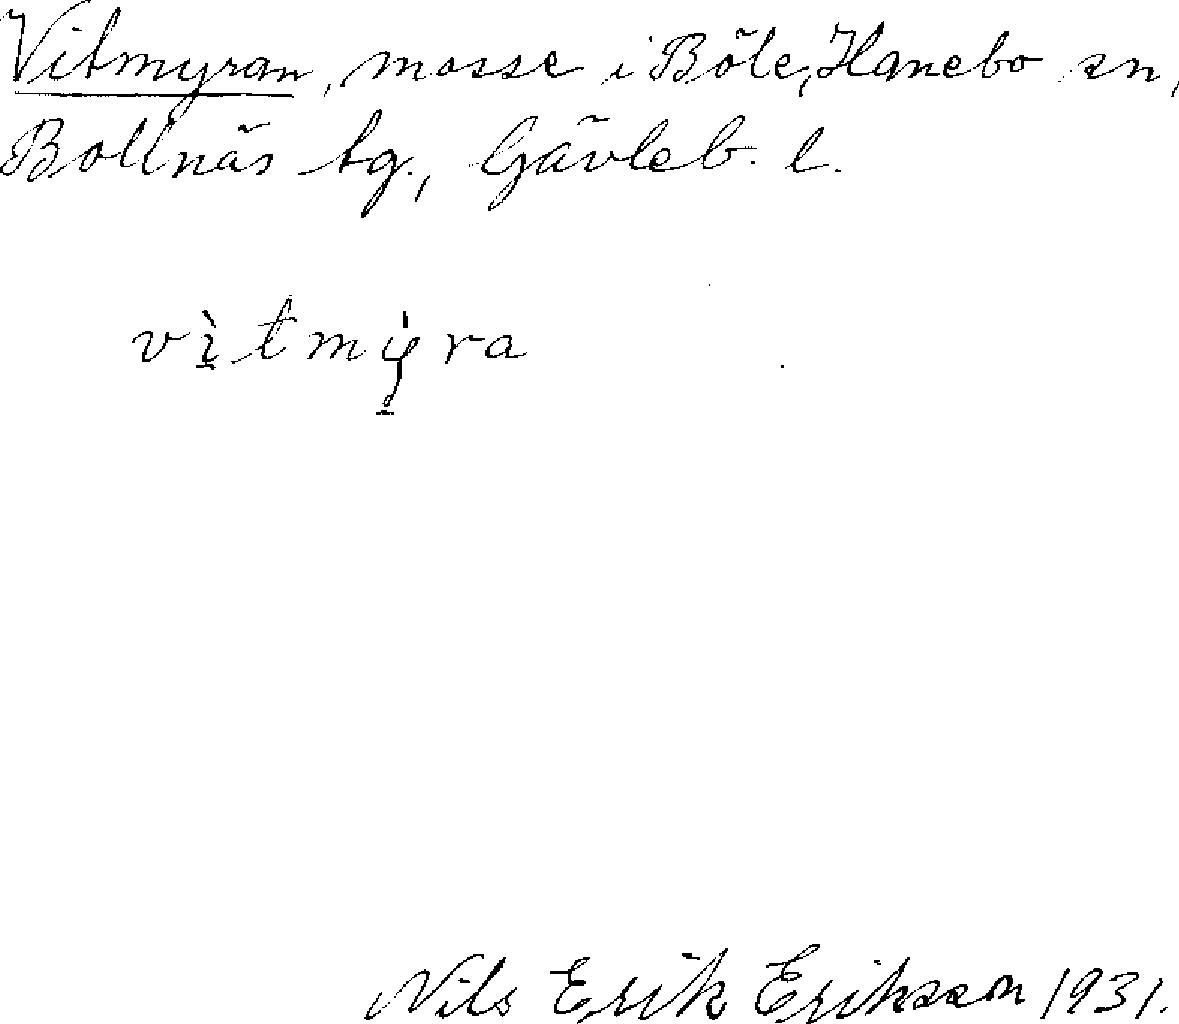 Vitmyran, mosse i Böle, Hanebo sn,
Bollnäs tg., Gävleb. l.
vì̠tmý̠ra
Nils Erik Eriksson 1931.